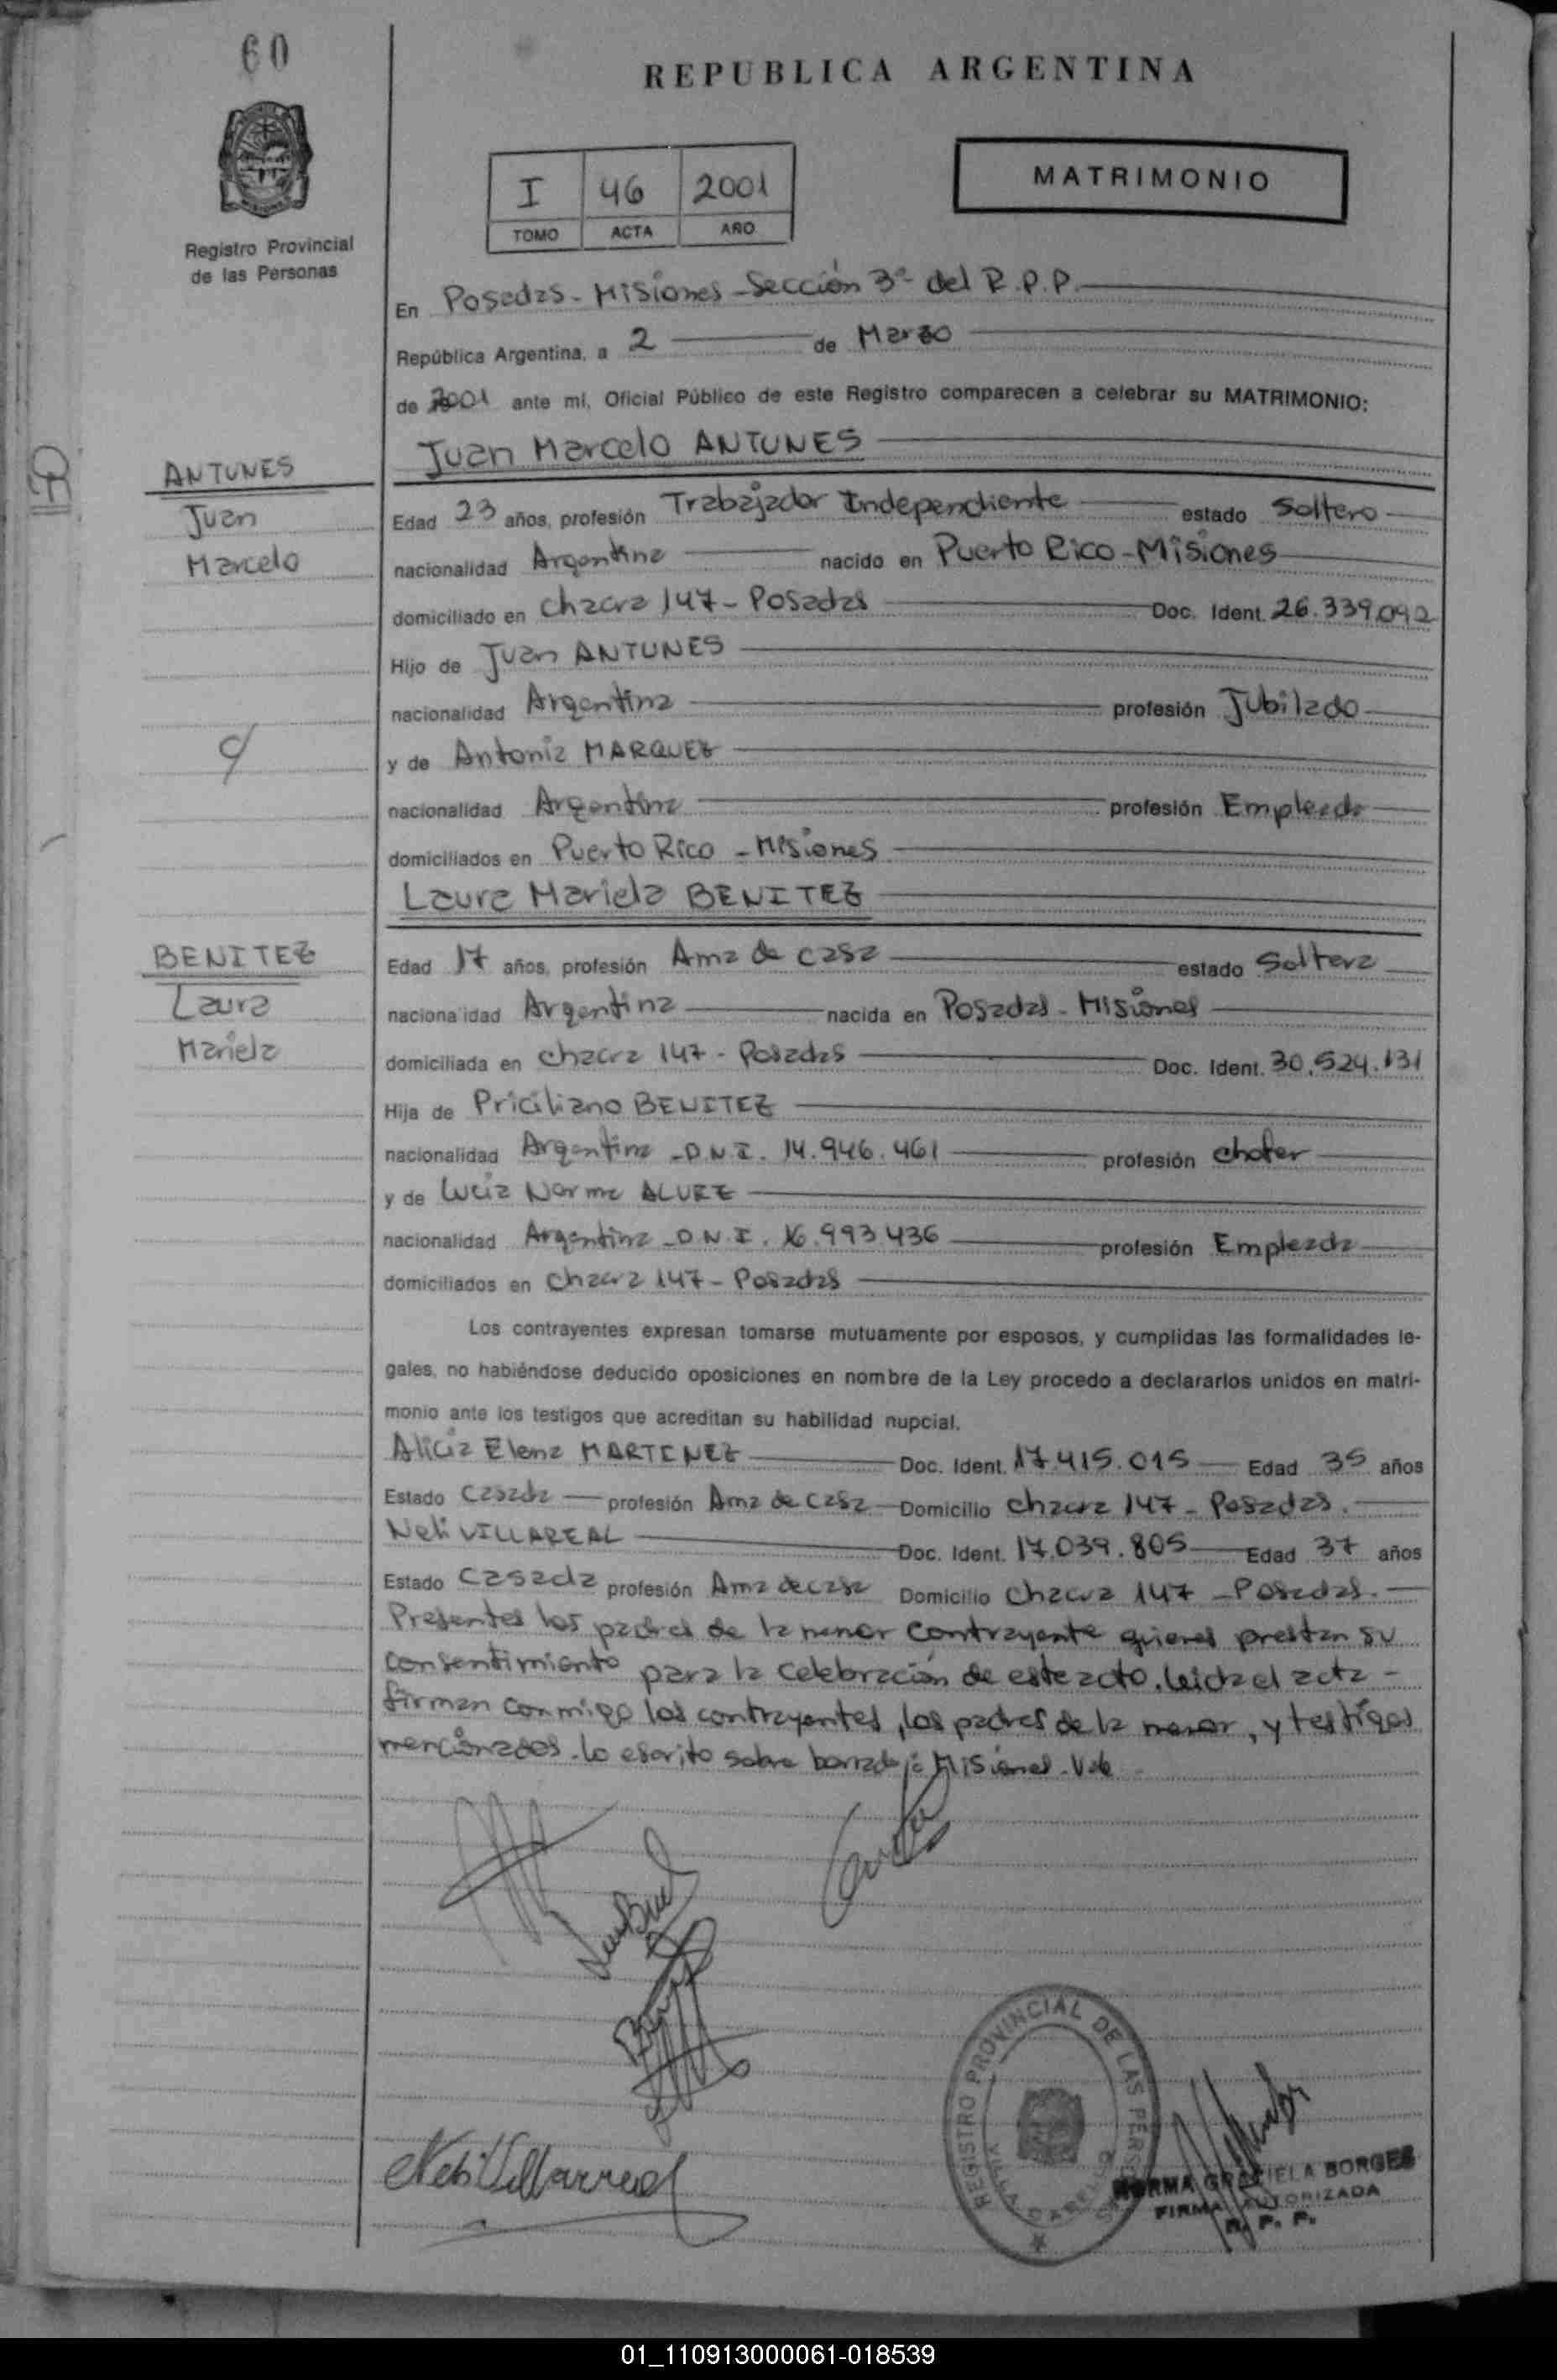 60
REPUBLICA ARGENTINA
MATRIMONIO
I 46 2001
TOMO ACTA AÑO
Registro Provincial
de las Personas
En Posadas - Misiones - Sección 3ª del R.P.P.
República Argentina, a 2 de Marzo
de 2001 ante mí, Oficial Público de este Registro comparecen a celebrar su MATRIMONIO:
Juan Marcelo ANTUNES
ANTUNES
Juan
Marcelo
Edad 23 años, profesión Trabajador Independiente estado Soltero
nacionalidad Argentina nacido en Puerto Rico - Misiones
domiciliado en Chacra 147 - Posadas Doc. Ident. 26.339.092
Hijo de Juan ANTUNES
nacionalidad Argentina profesión Jubilado
c/
y de Antonia MARQUEZ
nacionalidad Argentina profesión Empleada
domiciliados en Puerto Rico - Misiones
Laura Mariela BENITEZ
BENITEZ
Laura
Mariela
Edad 17 años, profesión Ama de casa estado Soltera
nacionalidad Argentina nacida en Posadas - Misiones
domiciliada en Chacra 147 - Posadas Doc. Ident. 30.524.131
Hija de Priciliano BENITEZ
nacionalidad Argentina - D.N.I. 14.946.461 profesión chofer
y de Lucia Norma ALVEZ
nacionalidad Argentina - D.N.I. 16.993.436 profesión Empleada
domiciliados en Chacra 147 - Posadas
Los contrayentes expresan tomarse mutuamente por esposos, y cumplidas las formalidades le-
gales, no habiéndose deducido oposiciones en nombre de la Ley procedo a declararlos unidos en matri-
monio ante los testigos que acreditan su habilidad nupcial.
Alicia Elena MARTINEZ Doc. Ident. 17.415.015 Edad 35 años
Estado Casada profesión Ama de casa Domicilio Chacra 147 - Posadas.
Neli VILLAREAL Doc. Ident. 17.039.805 Edad 37 años
Estado Casada profesión Ama de casa Domicilio Chacra 147 - Posadas.
Presentes los padres de la menor contrayente quienes prestan su
consentimiento para la celebración de este acto. Leida el acta -
firman conmigo los contrayentes, los padres de la menor, y testigos
mencionados. Lo escrito sobre borrado: Misiones. Vale
Neli Villarreal
REGISTRO PROVINCIAL DE LAS PERSONAS
NORMA GRACIELA BORGES
FIRMA AUTORIZADA
R. P. P.
01_110913000061-018539